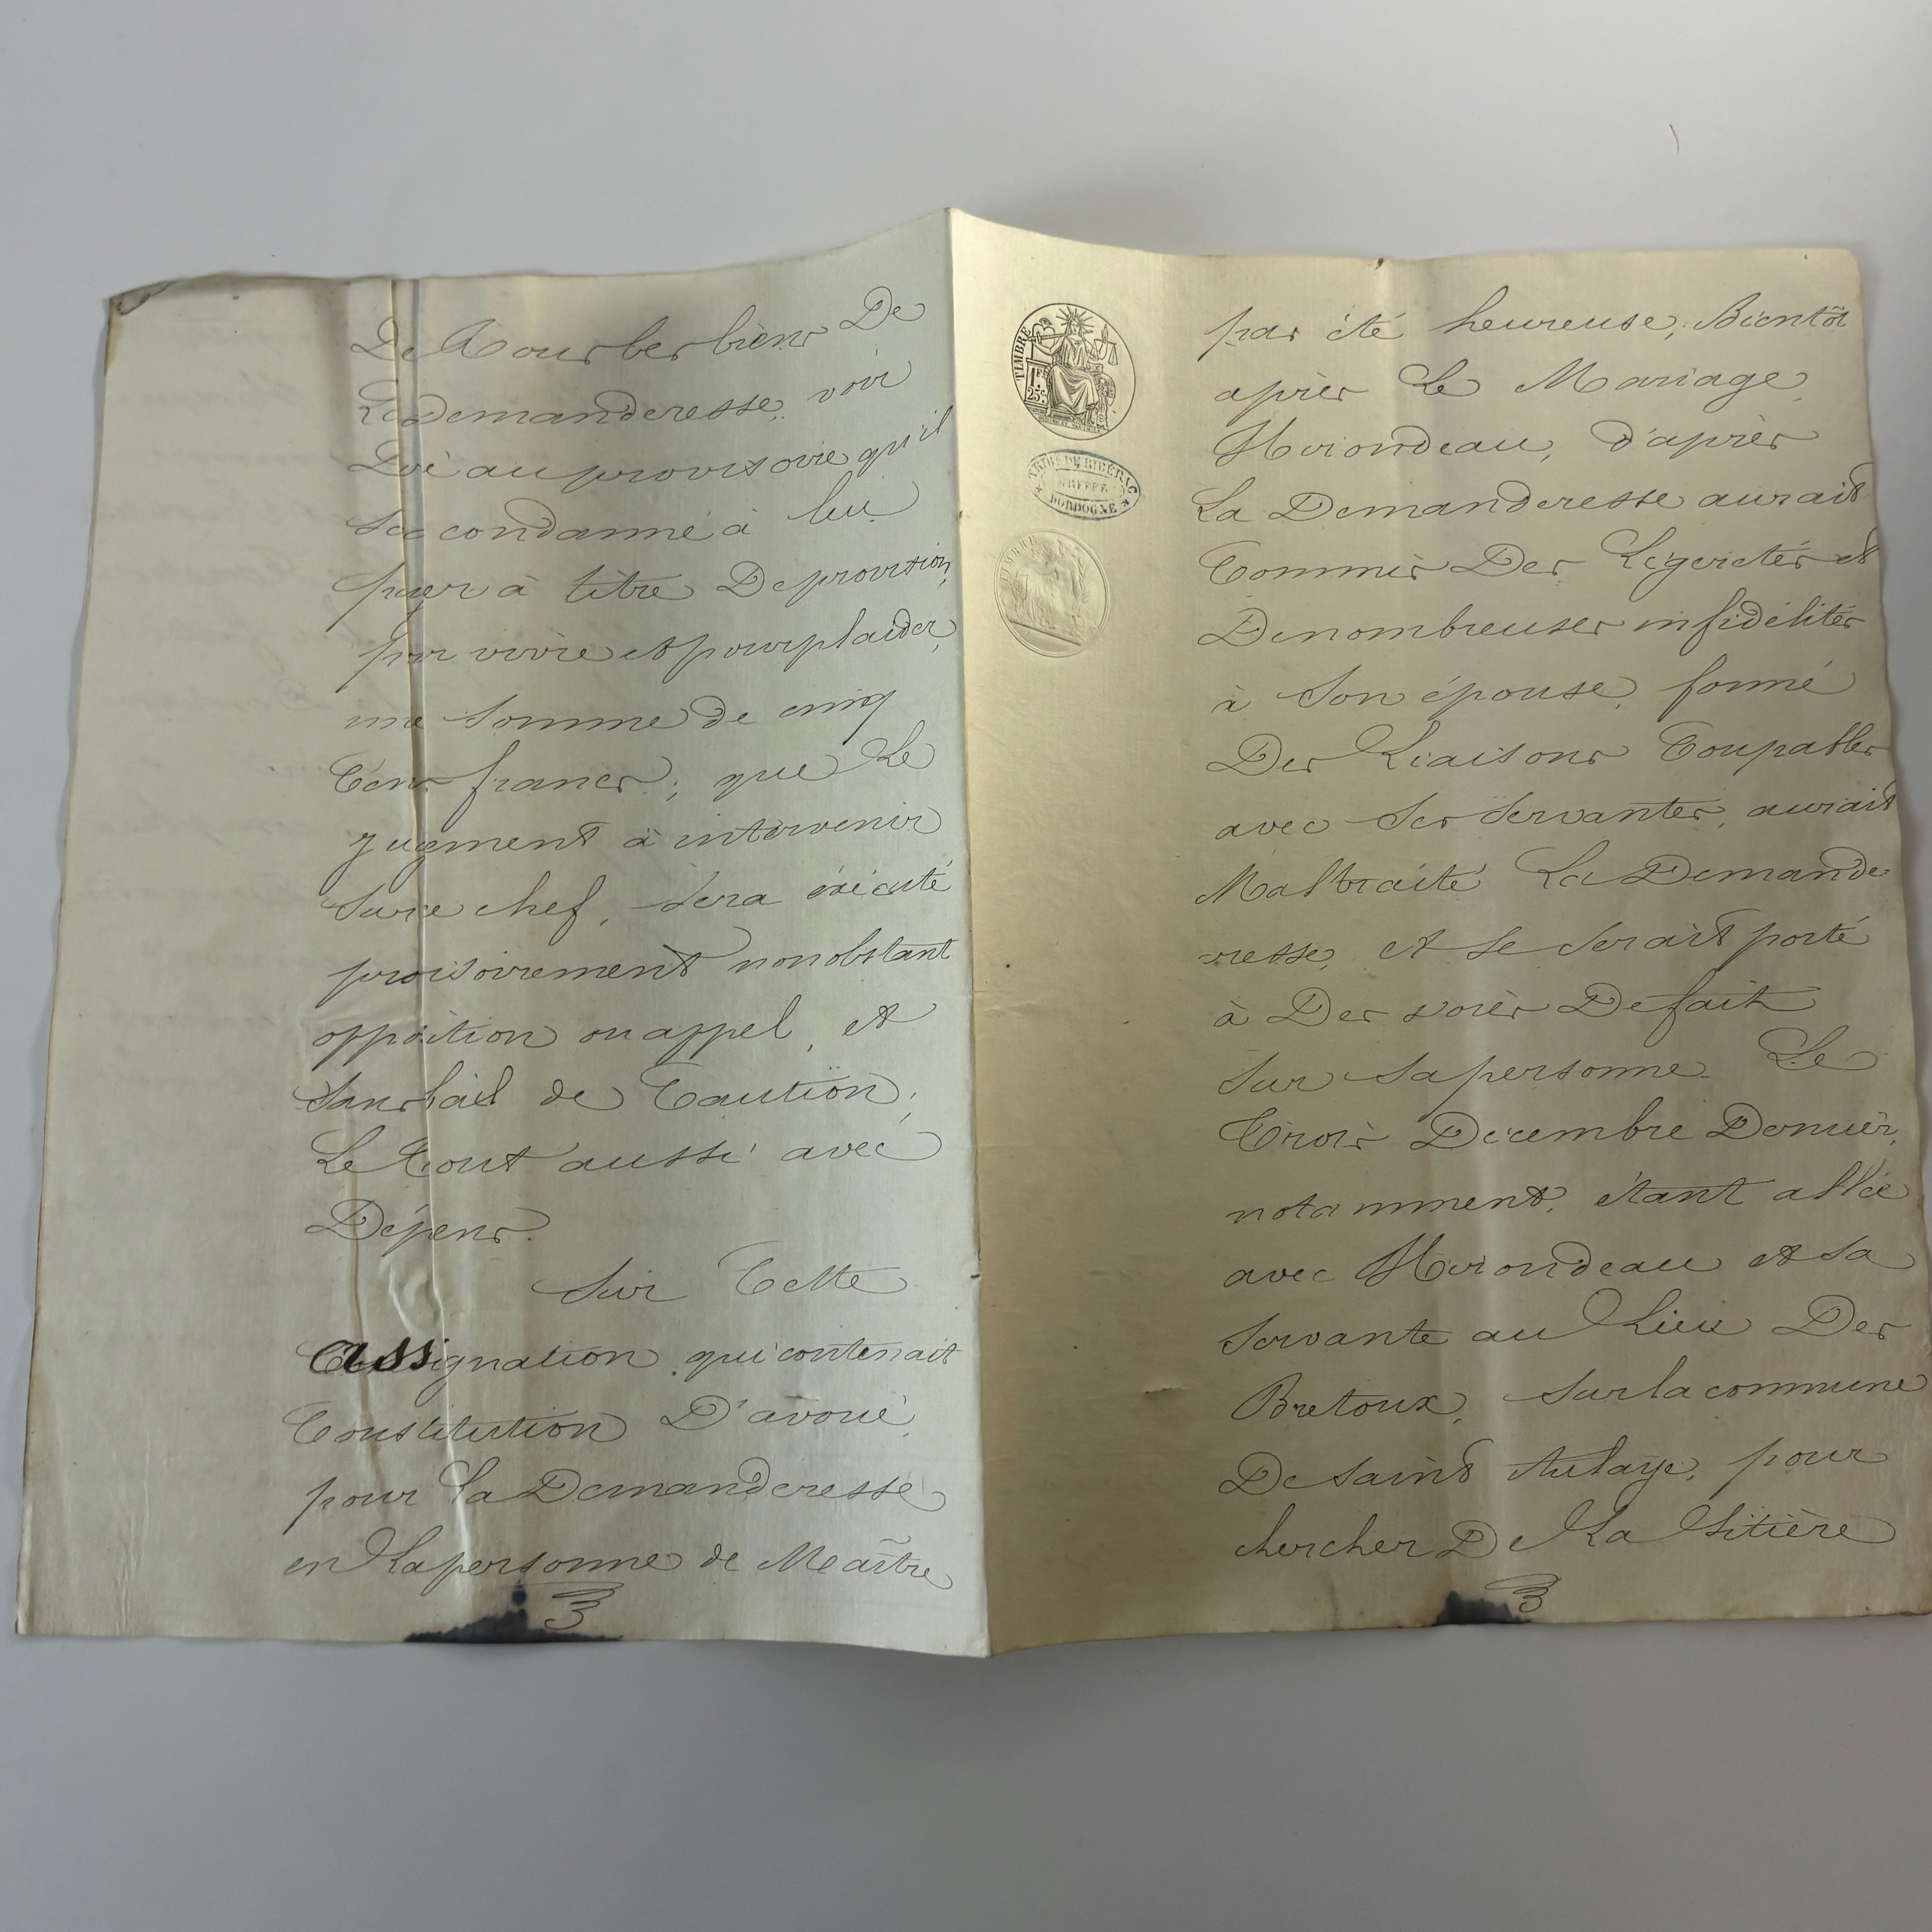 De Tous les biens De
La demanderesse, voir
Dire au provisoire qu'il
sera condamné à lui
payer à titre De provision,
pour vivre et pour plaider,
une somme de cinq
Cens francs; que Le
Jugement à intervenir
sur ce chef, sera exécuté
provisoirement nonobstant
opposition ou appel, et
Sans bail de Caution;
Le Tout aussi avec
Dépens.
Sur Cette
assignation qui contenait
Constitution D'avoué,
pour La Demanderesse
en La personne de Maître
3
TIMBRE
1F
25c
TRIBL DE RIBÉRAC
GREFFE
DORDOGNE
TIMBRE
pas été heureuse; Bientôt
après Le Mariage
Moriondeau, d'après
La Demanderesse aurait
Commis Des Légèretés et
De nombreuses infidélités
à son épouse, formé
Des Liaisons Coupables
avec ses servantes, aurait
Maltraité La Demande-
resse, et se serait porté
à Des voies De fait
sur sa personne. Le
Trois Décembre Dernier,
notamment, étant allée
avec Moriondeau et sa
servante au Lieu Des
Bretoux, sur la commune
De Saint Aulaye, pour
chercher De La Litière
3